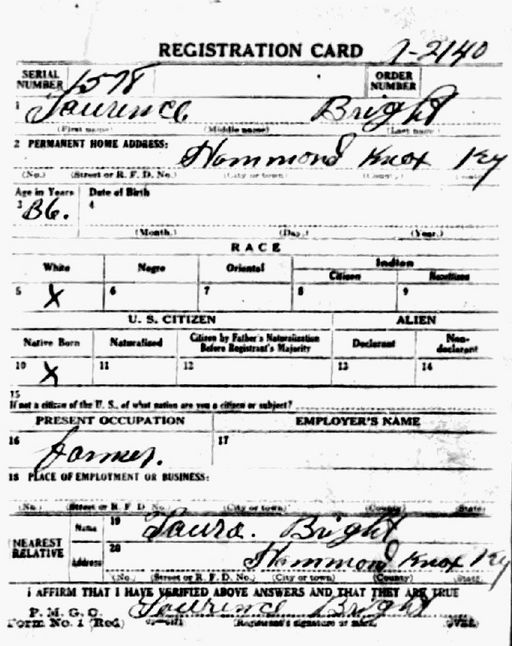 REGISTRATION CARD 1-2140
SERIAL NUMBER 1578 ORDER NUMBER
1 Laurence Bright
(First name) (Middle name) (Last name)
2 PERMANENT HOME ADDRESS: Hammond Knox Ky
(No.) (Street or R. F. D. No.) (City or town) (County)
Age in Years Date of Birth
3 36. 4
(Month.) (Day.) (Year.)
RACE
White Negro Oriental Indian
Citizen
5 X 6 7 8 9
U. S. CITIZEN ALIEN
Native Born Naturalized Citizen by Father's Naturalization Before Registrant's Majority Declarant Non-declarant
10 X 11 12 13 14
15
If not a citizen of the U. S., of what nation are you a citizen or subject?
PRESENT OCCUPATION EMPLOYER'S NAME
16 farmer. 17
18 PLACE OF EMPLOYMENT OR BUSINESS:
(No.) (Street or R. F. D. No.) (City or town) (County) (State)
NEAREST RELATIVE Name 19 Laura. Bright
Address 20 Hammond Knox Ky
(No.) (Street or R. F. D. No.) (City or town) (County) (State)
I AFFIRM THAT I HAVE VERIFIED ABOVE ANSWERS AND THAT THEY ARE TRUE
P. M. G. O. Laurence Bright
Form No. 1 (Red) (Registrant's signature or mark) (OVER)